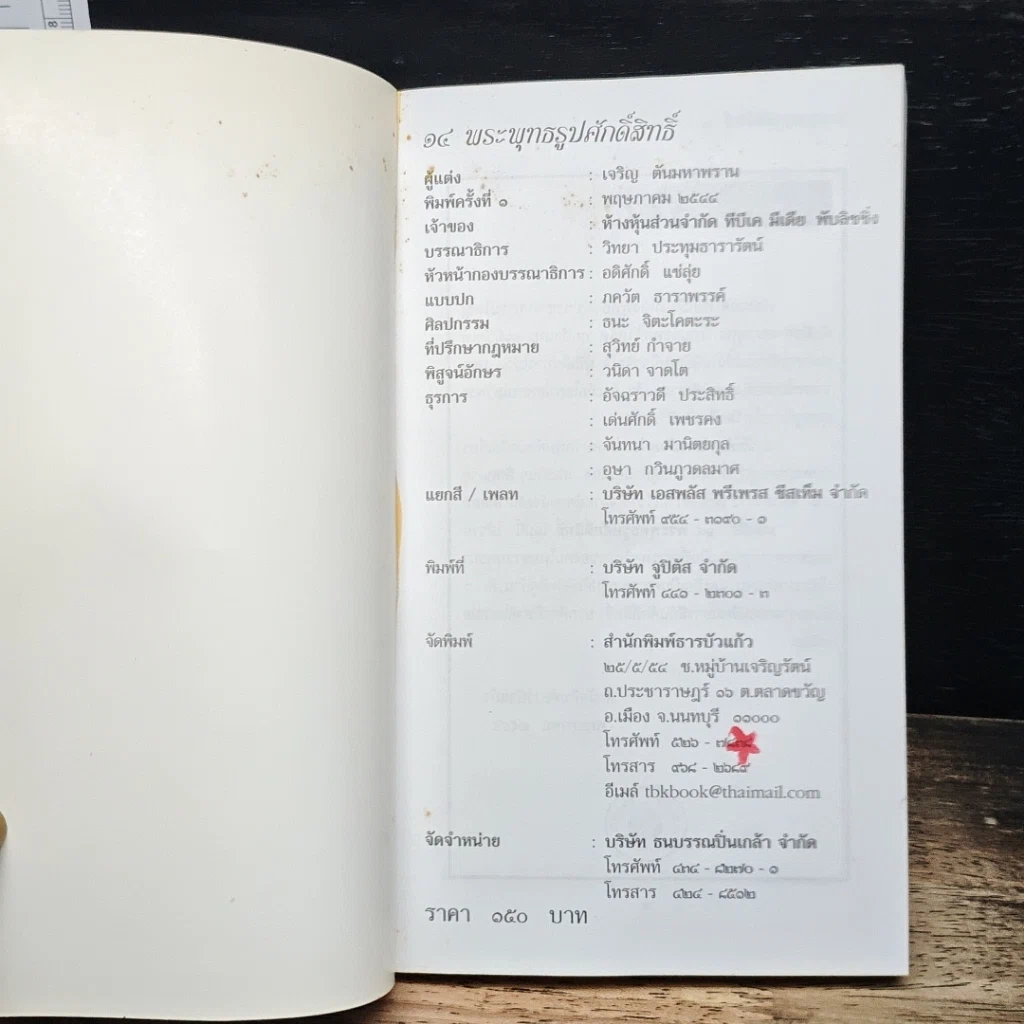 ๑๔ พระพุทธรูปศักดิ์สิทธิ์
ผู้แต่ง : เจริญ ตันมหาพราน
พิมพ์ครั้งที่ ๑ : พฤษภาคม ๒๕๔๔
เจ้าของ : ห้างหุ้นส่วนจำกัด ทีบีเค มีเดีย พับลิชชิ่ง
บรรณาธิการ : วิทยา ประทุมธารารัตน์
หัวหน้ากองบรรณาธิการ : อดิศักดิ์ แซ่ลุ่ย
แบบปก : ภควัต ธาราพรรค์
ศิลปกรรม : ธนะ จิตะโคตะระ
ที่ปรึกษากฎหมาย : สุวิทย์ กำจาย
พิสูจน์อักษร : วนิดา จาดโต
ธุรการ : อัจฉราวดี ประสิทธิ์
: เด่นศักดิ์ เพชรคง
: จันทนา มานิตยกุล
: อุษา กวินภูวดลมาศ
แยกสี / เพลท : บริษัท เอสพลัส พรีเพรส ซีสเท็ม จำกัด
โทรศัพท์ ๙๕๔ - ๓๑๙๐ - ๑
พิมพ์ที่ : บริษัท จูปิตัส จำกัด
โทรศัพท์ ๔๔๑ - ๒๓๐๑ - ๓
จัดพิมพ์ : สำนักพิมพ์ธารบัวแก้ว
๒๕/๕/๕๔ ซ.หมู่บ้านเจริญรัตน์
ถ.ประชาราษฎร์ ๑๖ ต.ตลาดขวัญ
อ.เมือง จ.นนทบุรี ๑๑๐๐๐
โทรศัพท์ ๕๒๖ -
โทรสาร ๙๖๘ - ๒๖๘๙
อีเมล์ tbkbook@thaimail.com
จัดจำหน่าย : บริษัท ธนบรรณปิ่นเกล้า จำกัด
โทรศัพท์ ๔๓๔ - ๘๒๗๐ - ๑
โทรสาร ๔๒๔ - ๘๕๑๒
ราคา ๑๕๐ บาท